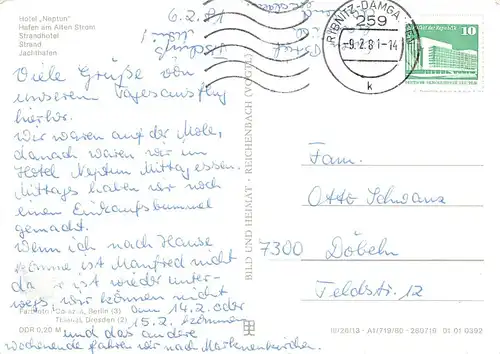 Hotel „Neptun"
Hafen am Alten Strom
Strandhotel
Strand
Jachthafen
6.2.81
RIBNITZ-DAMGARTEN
259
-9.2.81-14
k
10
Viele Grüße von
unserem Tagesausflug
hierher.
Wir waren auf der Mole,
danach waren wir im
Hotel Neptun Mittagessen.
Mittags haben wir noch
einen Einkaufsbummel
gemacht.
Wenn ich nach Hause
komme ist Manfred nicht
da er ist wieder unter-
wegs, wir können nicht
am 14.2. oder
15.2. kommen
und das andere
Wochenende fahren wir nach Markneukirchen.
Berlin (3)
Dresden (2)
DDR 0,20 M
BILD UND HEIMAT · REICHENBACH (VOGTL)
Fam.
Otto Schwanz
7300 Döbeln
Feldstr. 12
01 01 0392